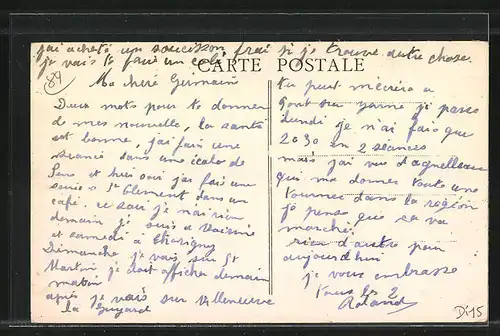 j'ai acheté un saucisson frai si je trouve autre chose
je vais te faire un coli
CARTE POSTALE
89
Ma cheré Germain
Deux mots pour te donner
de mes nouvelle, la santé
est bonne, j'ai fais une
séance dans une école de
Sens et hier soir j'ai fais une
St Clement dans un
café. ce soir je n'ai rien
demain je suis a
et samedi a Thorigny
Dimanche je vais sur St
Martin je doit afficher demain
matin
après je vais sur Villeneuve
la Guyard
tu peut m'écrire a
Pont sur Yonne je passe
Lundi je n'ai fais que
2030 en 2 séances
mais j'ai vu d'agnelleau
qui ma donner toute une
tournee dans la region
je pense que ca va
marché.
rien d'autre pour
aujourd'hui
je vous embrasse
tous les 2
Roland
Di15